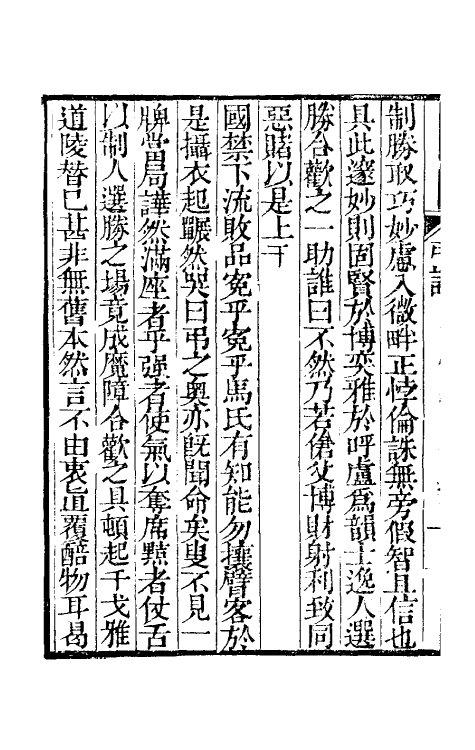 制勝取巧妙慮入微畔正悖倫誅無旁假智且信也
具此邃妙則固賢於博奕雅於呼盧爲韻士逸人選
勝合歡之一助誰曰不然乃若傖父博財射利致同
惡賭以是上干
國禁下流敗品寃乎寃乎馬氏有知能勿攘臂客於
是攝衣起囅然笑曰弔之奥亦旣聞命矣叟不見一
牌當局譁然滿座者乎强者使氣以奪席黠者仗舌
以制人選勝之場竟成魔障合歡之具頓起干戈雅
道陵替已甚非無舊本然言不由衷旨直覆醅物耳曷